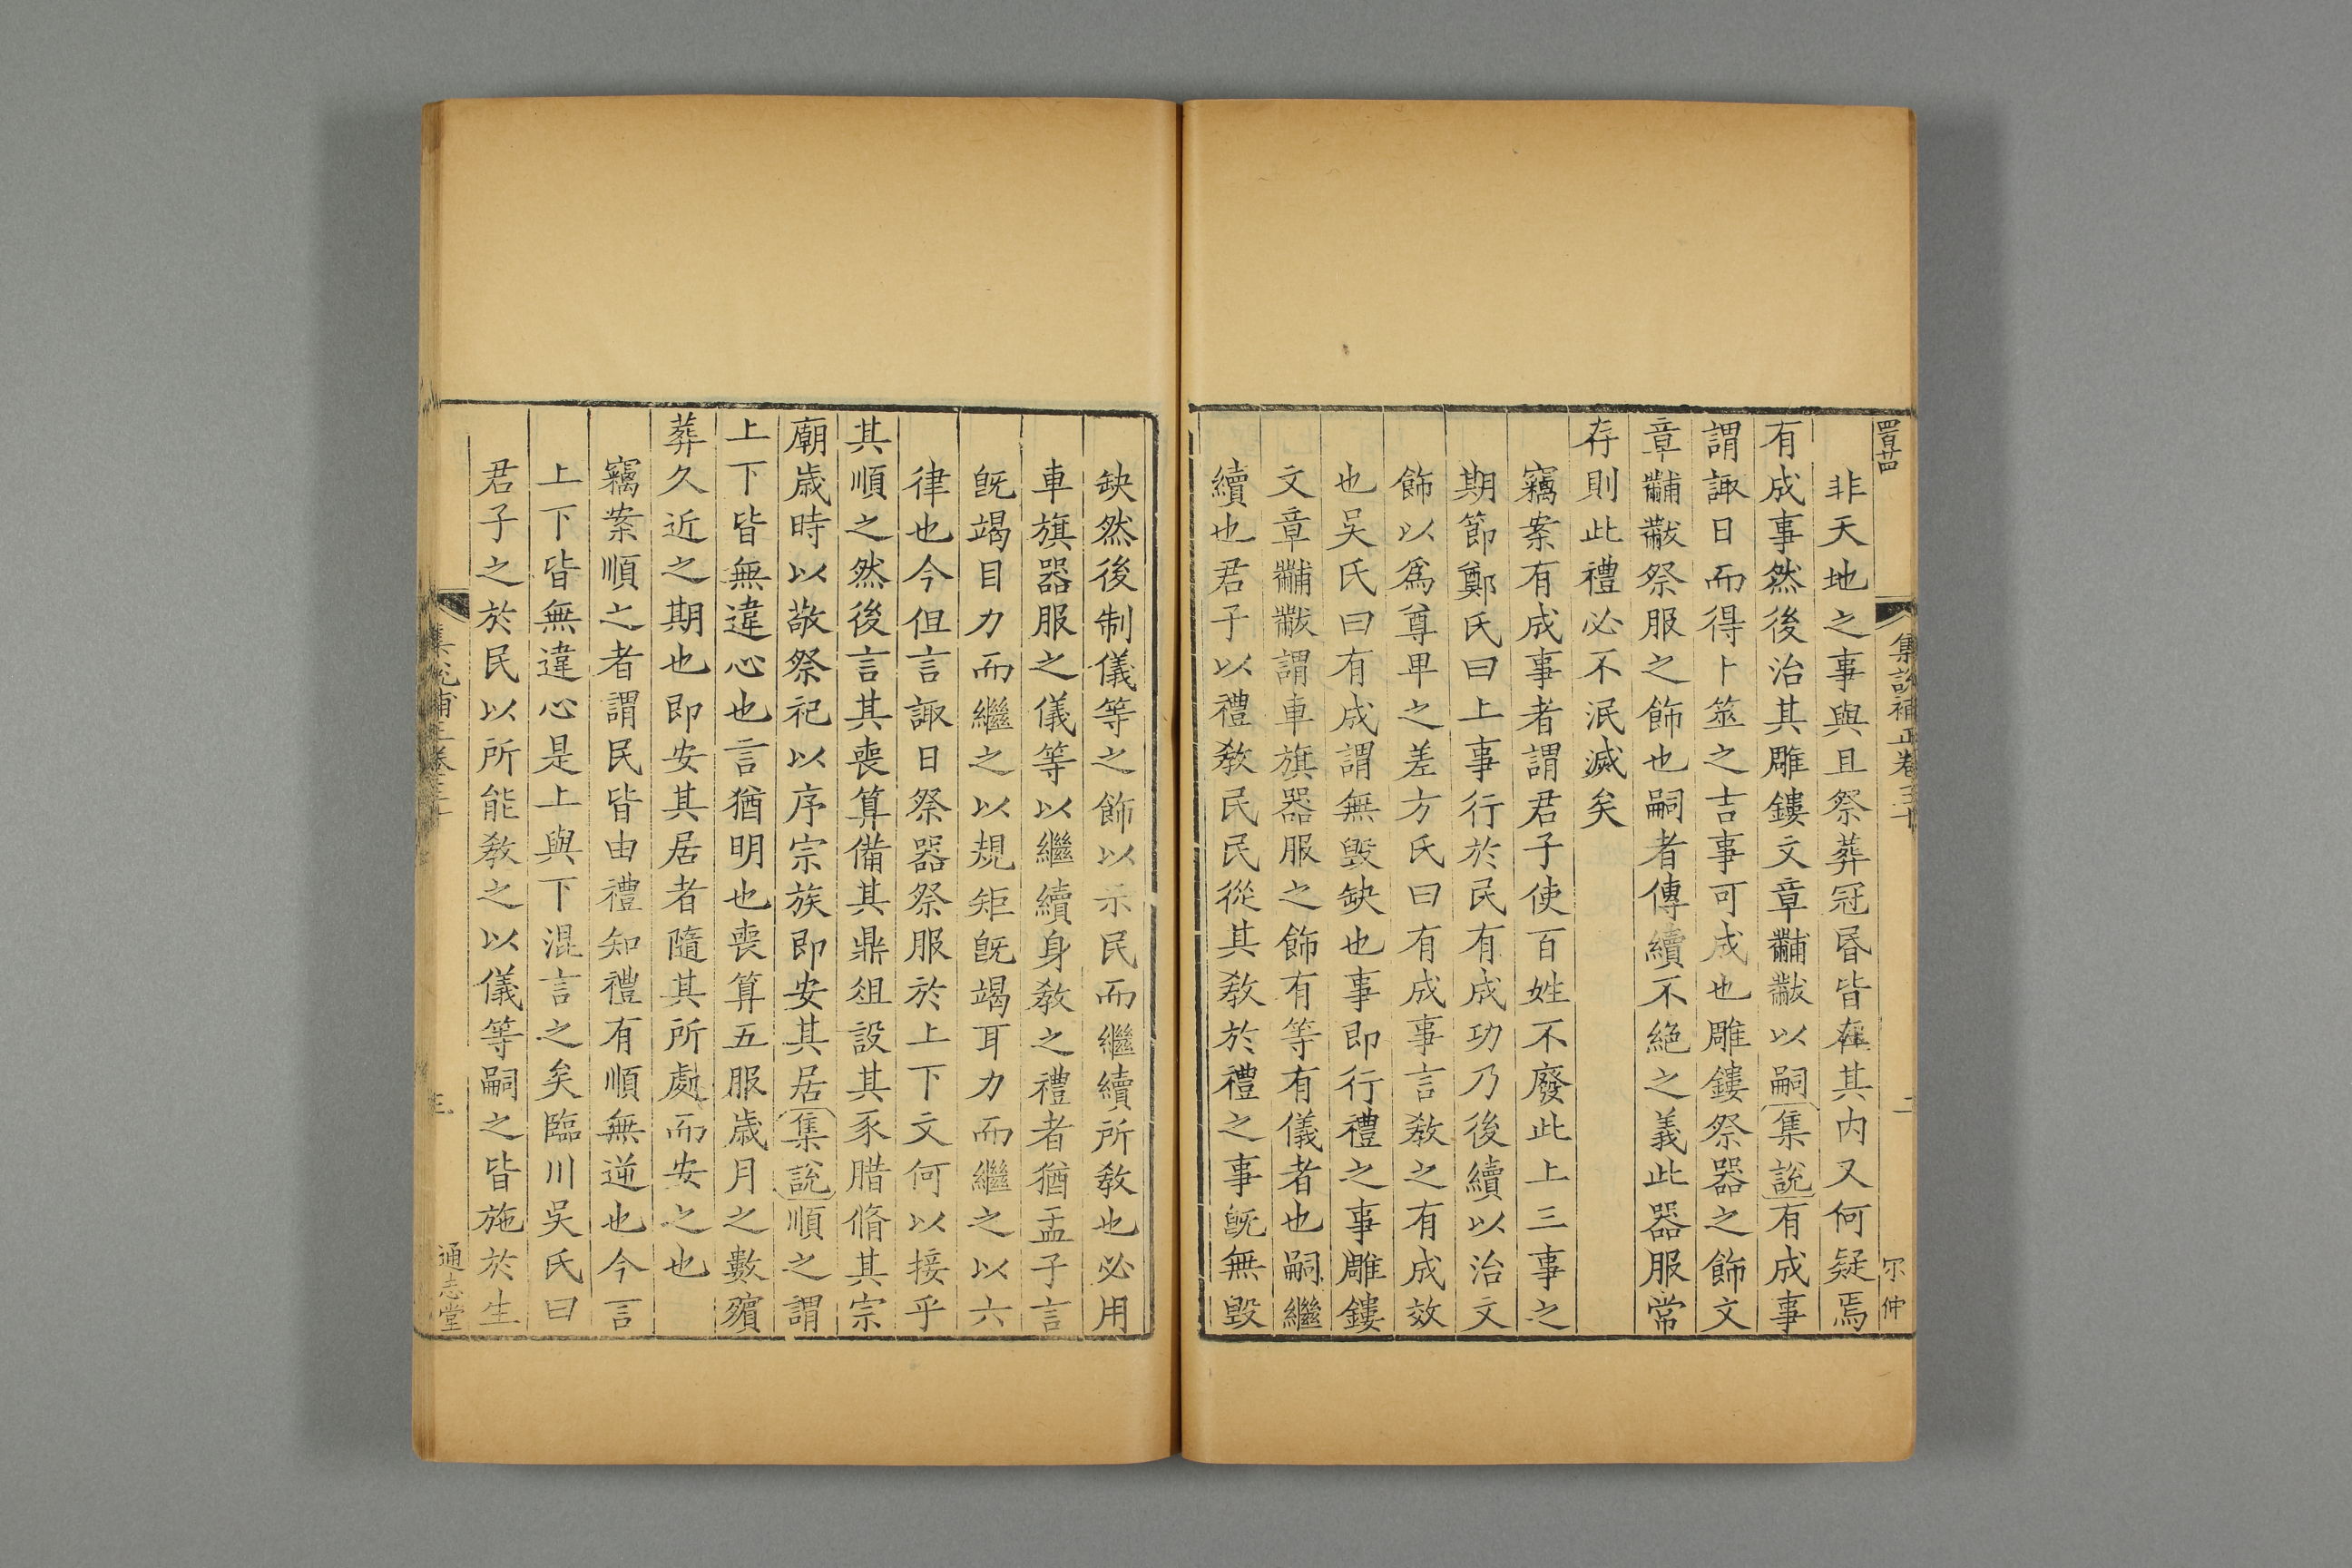 非天地之事與且祭葬冠昬皆在其内又何疑焉
有成事然後治其雕鏤文章黼黻以嗣集說有成事
謂諏日而得卜筮之吉事可成也雕鏤祭器之飾文
章黼黻祭服之飾也嗣者傳續不絶之義此器服常
存則此禮必不泯滅矣
竊案有成事者謂君子使百姓不廢此上三事之
期節鄭氏曰上事行於民有成功乃後續以治文
飾以爲尊卑之差方氏曰有成事言敎之有成效
也吴氏曰有成謂無毁缺也事即行禮之事雕鏤
文章黼黻謂車旗器服之飾有等有儀者也嗣繼
續也君子以禮敎民民從其敎於禮之事旣無毁
集說補正卷三十
二
缺然後制儀等之飾以示民而繼續所敎也必用
車旗器服之儀等以繼續身敎之禮者猶孟子言
旣竭目力而繼之以規矩旣竭耳力而繼之以六
律也今但言諏日祭器祭服於上下文何以接乎
其順之然後言其喪算備其鼎俎設其豕腊脩其宗
廟歳時以敬祭祀以序宗族即安其居集說順之謂
上下皆無違心也言猶明也喪算五服歳月之數殯
葬久近之期也即安其居者隨其所處而安之也
竊案順之者謂民皆由禮知禮有順無逆也今言
上下皆無違心是上與下混言之矣臨川吴氏曰
君子之於民以所能敎之以儀等嗣之皆施於生
集說補正卷三十
三
通志堂